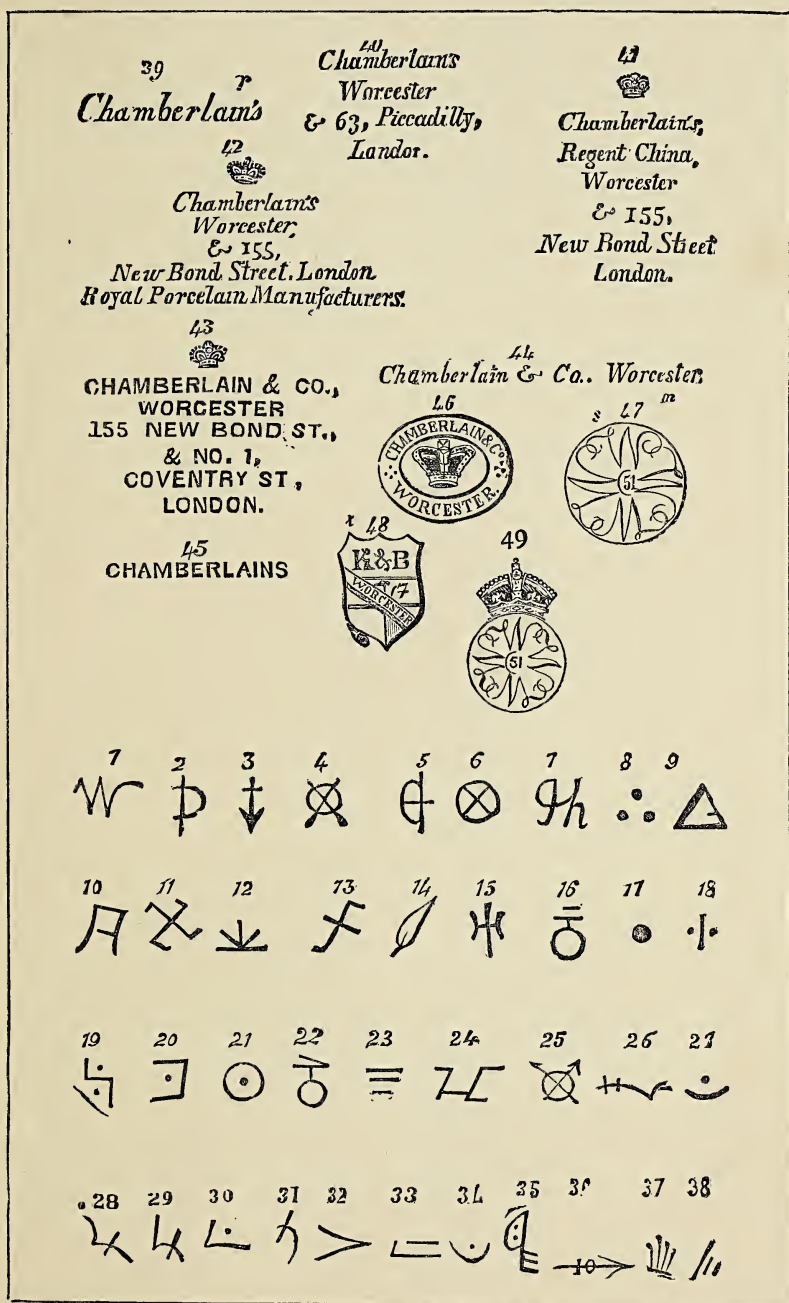 39
r
Chamberlain's
40
Chamberlain's
Worcester
& 63, Piccadilly,
London.
41
Chamberlain's,
Regent China,
Worcester
& 155,
New Bond Street
London.
42
Chamberlain's
Worcester,
& 155,
New Bond Street. London
Royal Porcelain Manufacturers.
43
CHAMBERLAIN & CO.,
WORCESTER
155 NEW BOND ST.,
& NO. 1,
COVENTRY ST,
LONDON.
44
Chamberlain & Co.. Worcester.
45
CHAMBERLAINS
46
CHAMBERLAIN & Co
WORCESTER.
s 47 m
51
48
K&B
WORCESTER
17
49
51
1 2 3 4 5 6 7 8 9
10 11 12 13 14 15 16 17 18
19 20 21 22 23 24 25 26 27
28 29 30 31 32 33 34 35 36 37 38
10